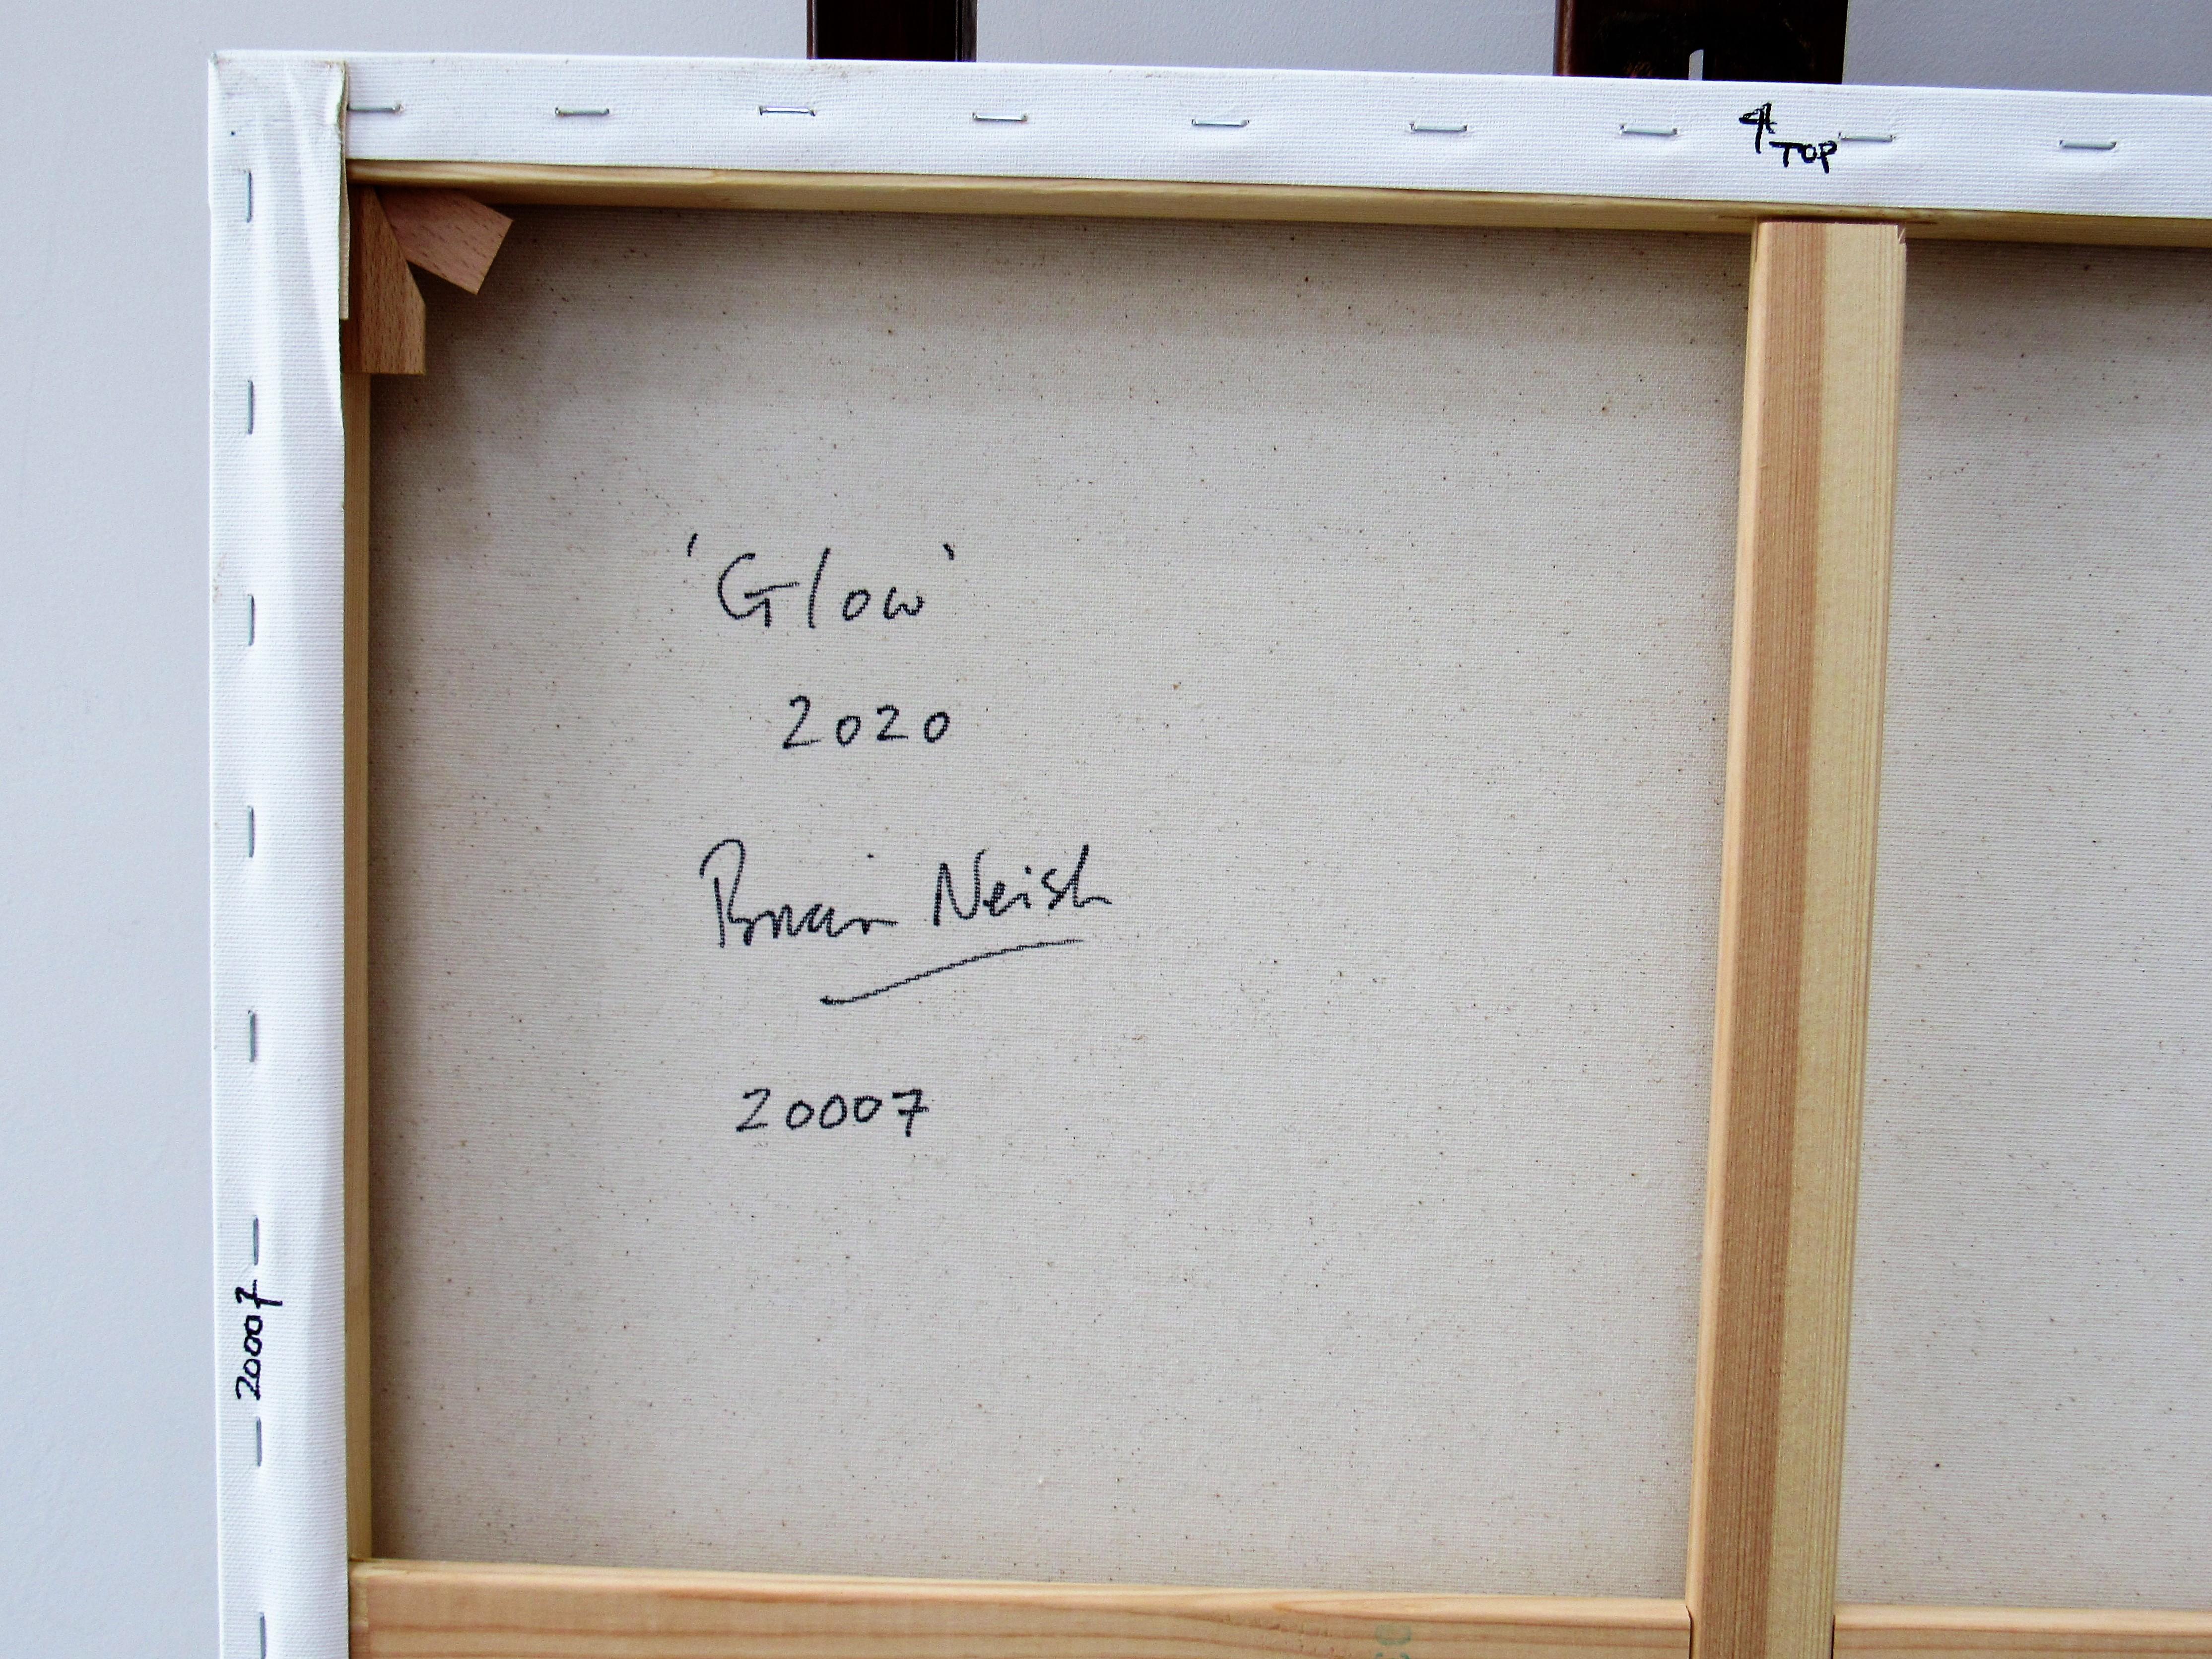 ↑ TOP
'Glow'
2020
Brian Neish
20007
20007